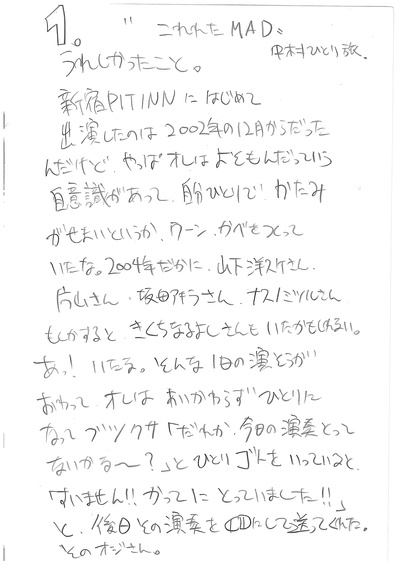 1。 "こわれたMAD"
中村ひとり旅.
うれしかったこと。
新宿PITINNにはじめて
出演したのは2002年の12月からだった
んだけど、やっぱオレはよそもんだっていう
自意識があって、自分ひとりで かたみ
がせまいというか、ウーン、かべをつくって
いたな。2004年だかに、山下洋スケさん、
片山さん、坂田アキラさん、ナスノミツルさん
もしかすると、きくちなるよしさんもいたかもしれない。
あっ! いたな。そんな1日の演そうが
おわって、オレは あいかわらず ひとりに
なって ブツクサ「だれか、今日の演奏とって
ないかな〜?」とひとりゴトをいっていると、
「すいません!! かってに とっていました!!」
と、後日その演奏をCDにして送ってくれた。
そのオジさん。